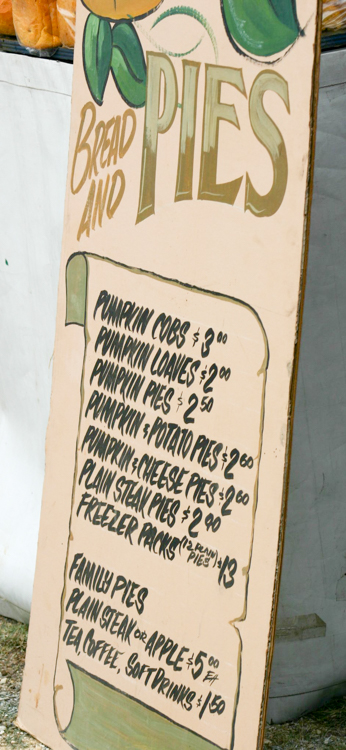 BREAD AND PIES
PUMPKIN COBS $3.00
PUMPKIN LOAVES $2.00
PUMPKIN PIES $2.50
PUMPKIN & POTATO PIES $2.60
PUMPKIN & CHEESE PIES $2.60
PLAIN STEAK PIES $2.00
FREEZER PACKS (12 PLAIN PIES) $13
FAMILY PIES
PLAIN STEAK OR APPLE $5.00 EA
TEA, COFFEE, SOFT DRINKS $1.50